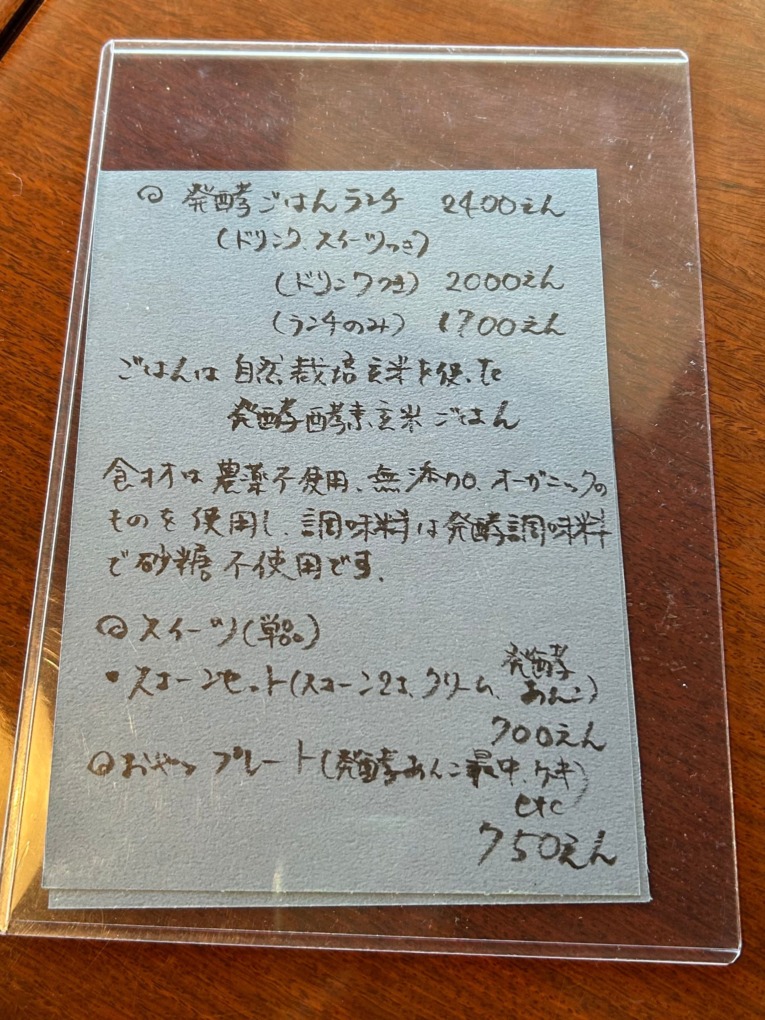 発酵ごはんランチ 2400えん
(ドリンク、スイーツつき)
(ドリンクつき) 2000えん
(ランチのみ) 1700えん
ごはんは 自然栽培玄米を使った
発酵酵素玄米ごはん
食材は農薬不使用、無添加、オーガニックの
ものを使用し、調味料は発酵調味料
で砂糖不使用です。
スイーツ(単品)
・スコーンセット(スコーン2コ、クリーム、発酵あんこ)
700えん
おやつプレート(発酵あんこ最中、ケーキ
etc)
750えん